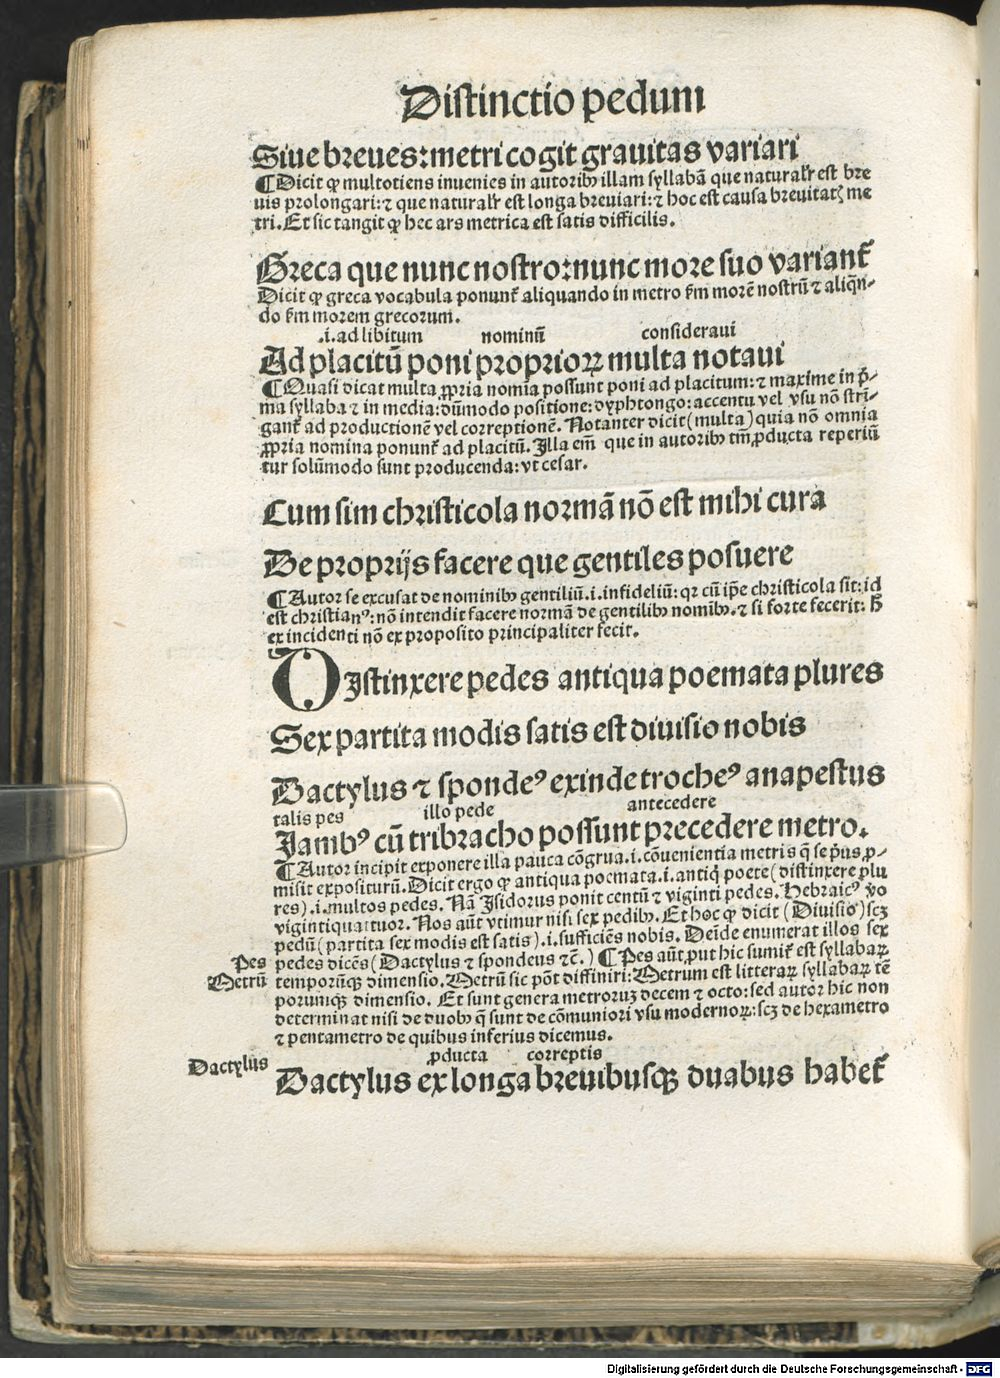 Distinctio pedum
Siue breues: metri cogit grauitas variari
¶Dicit ꝙ multotiens inuenies in autoribꝰ illam syllabā que naturalr̄ est bre
uis prolongari: ⁊ que naturalr̄ est longa breuiari: ⁊ hoc est causa breuitatꝭ me
tri. Et sic tangit ꝙ hec ars metrica est satis difficilis.
Greca que nunc nostro: nunc more suo variant̄
Dicit ꝙ greca vocabula ponunt̄ aliquando in metro ẜm morē nostrū ⁊ aliqn̄-
do ẜm morem grecorum.
.i. ad libitum nominū consideraui
Ad placitū poni proprioꝝ multa notaui
¶Quasi dicat multa ꝓpria nomīa possunt poni ad placitum: ⁊ maxime in p̄-
ma syllaba ⁊ in media: dūmodo positione: dyphtongo: accentu vel vsu nō strī-
gant̄ ad productionē vel correptionē. Notanter dicit (multa) quia nō omnia
ꝓpria nomina ponunt̄ ad placitū. Illa em̄ que in autoribꝰ tm̄ ꝓducta reperiū
tur solūmodo sunt producenda: vt cesar.
Cum sim christicola normā nō est mihi cura
De proprijs facere que gentiles posuere
¶Autor se excusat de nominibꝰ gentiliū .i. infideliū: qꝛ cū ip̄e christicola sit: id
est christianꝰ: nō intendit facere normā de gentilibꝰ nomībꝰ. ⁊ si forte fecerit: ꝧ
ex incidenti nō ex proposito principaliter fecit.
DIstinxere pedes antiqua poemata plures
Sex partita modis satis est diuisio nobis
Dactylus ⁊ spondeꝰ exinde trocheꝰ anapestus
talis pes illo pede antecedere
Iambꝰ cū tribracho possunt precedere metro.
¶Autor incipit exponere illa pauca cōgrua .i. cōuenientia metris q̄ se p̄us ꝓ-
misit expositurū. Dicit ergo ꝙ antiqua poemata .i. antiq̇ poete (distinxere plu
res) .i. multos pedes. Nā Isidorus ponit centū ⁊ viginti pedes. Hebraicꝰ vo
vigintiquattuor. Nos aūt vtimur nisi sex pedibꝰ. Et hoc ꝙ dicit (Diuisio) scꝫ
pedū (partita sex modis est satis) .i. sufficiēs nobis. Deīde enumerat illos sex
Pes pedes dicēs (Dactylus ⁊ spondeus ⁊c̄.) ¶Pes aūt, put hic sumit̄ est syllabaꝝ
Metrū temporūqꝫ dimensio. Metrū sic pōt diffiniri: Metrum est litteraꝝ syllabaꝝ tē
porumqꝫ dimensio. Et sunt genera metroruꝫ decem ⁊ octo: sed autor hic non
determinat nisi de duobꝰ q̄ sunt de cōmuniori vsu modernoꝝ: scꝫ de hexametro
⁊ pentametro de quibus inferius dicemus.
ꝓducta correptis
Dactylus Dactylus ex longa breuibusqꝫ duabus habet̄
Digitalisierung gefördert durch die Deutsche Forschungsgemeinschaft - DFG